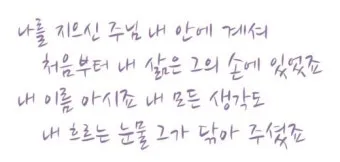 나를 지으신 주님 내 안에 계셔
처음부터 내 삶은 그의 손에 있었죠
내 이름 아시죠 내 모든 생각도
내 흐르는 눈물 그가 닦아 주셨죠